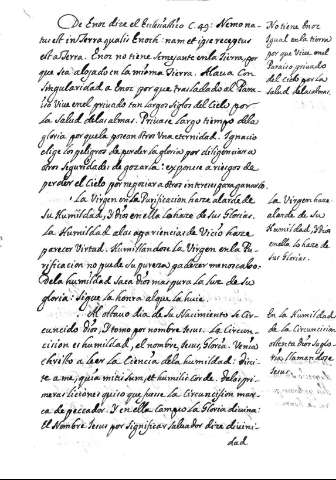 De Enoc dize el Eclesiastico C. 49. Nemo na-
tus est in terra qualis Enoch: nam et ipse receptus
est a terra. Enoc no tiene semejante en la tierra, por
que sea alojado en la misma Tierra. Alava con
singularidad a Enoc por que trasladado al Para-
iso vive en el privado tan largos siglos del Cielo por
la salud de las almas. Privase largo tiempo de la
gloria por que la posean otros Una eternidad. Ignacio
elige los peligros de perder la gloria por diligenciar a
otros seguridades de gozarla: expone a riesgos de
perder el Cielo por negociar a otros interes
La Virgen en la Purificacion haze alarde de
su Humildad, y Dios en ella la haze de sus Glorias.
La Humildad a las agencias de Vicio haze
parecer Virtud. Humillandose la Virgen en la Pu-
rificacion no puede su pureza padezer menoscabo.
De la humildad saca Dios mas pura la luz de su
gloria: sigue la honra al que la huie.
Al octavo dia de su Nacimiento se Cir-
cuncido Dios, y tomo por nombre Jesus. La Circun-
cision es humildad, el nombre, Jesus, Gloria. Venia
Christo a leer la Ciencia de la humildad: disci-
te a me, quia mitis sum, et humilis corde. de las pri-
meras liciones quiso que fuesse la Circuncision mar-
ca de peccador. Y en ella campeo la Gloria divina:
El Nombre Jesus por significar salvador dize divini-
dad
No tiene Enoc
Igual en la tierra
por que Vive en el
Paraiso privado
del Cielo por la
salud de las almas.
La Virgen haze
alarde de su
Humildad, y Dios
en ella la haze de
sus Glorias.
En la Humildad
de la Circuncision
ostenta Dios su glo-
ria, llamandose
Jesus.